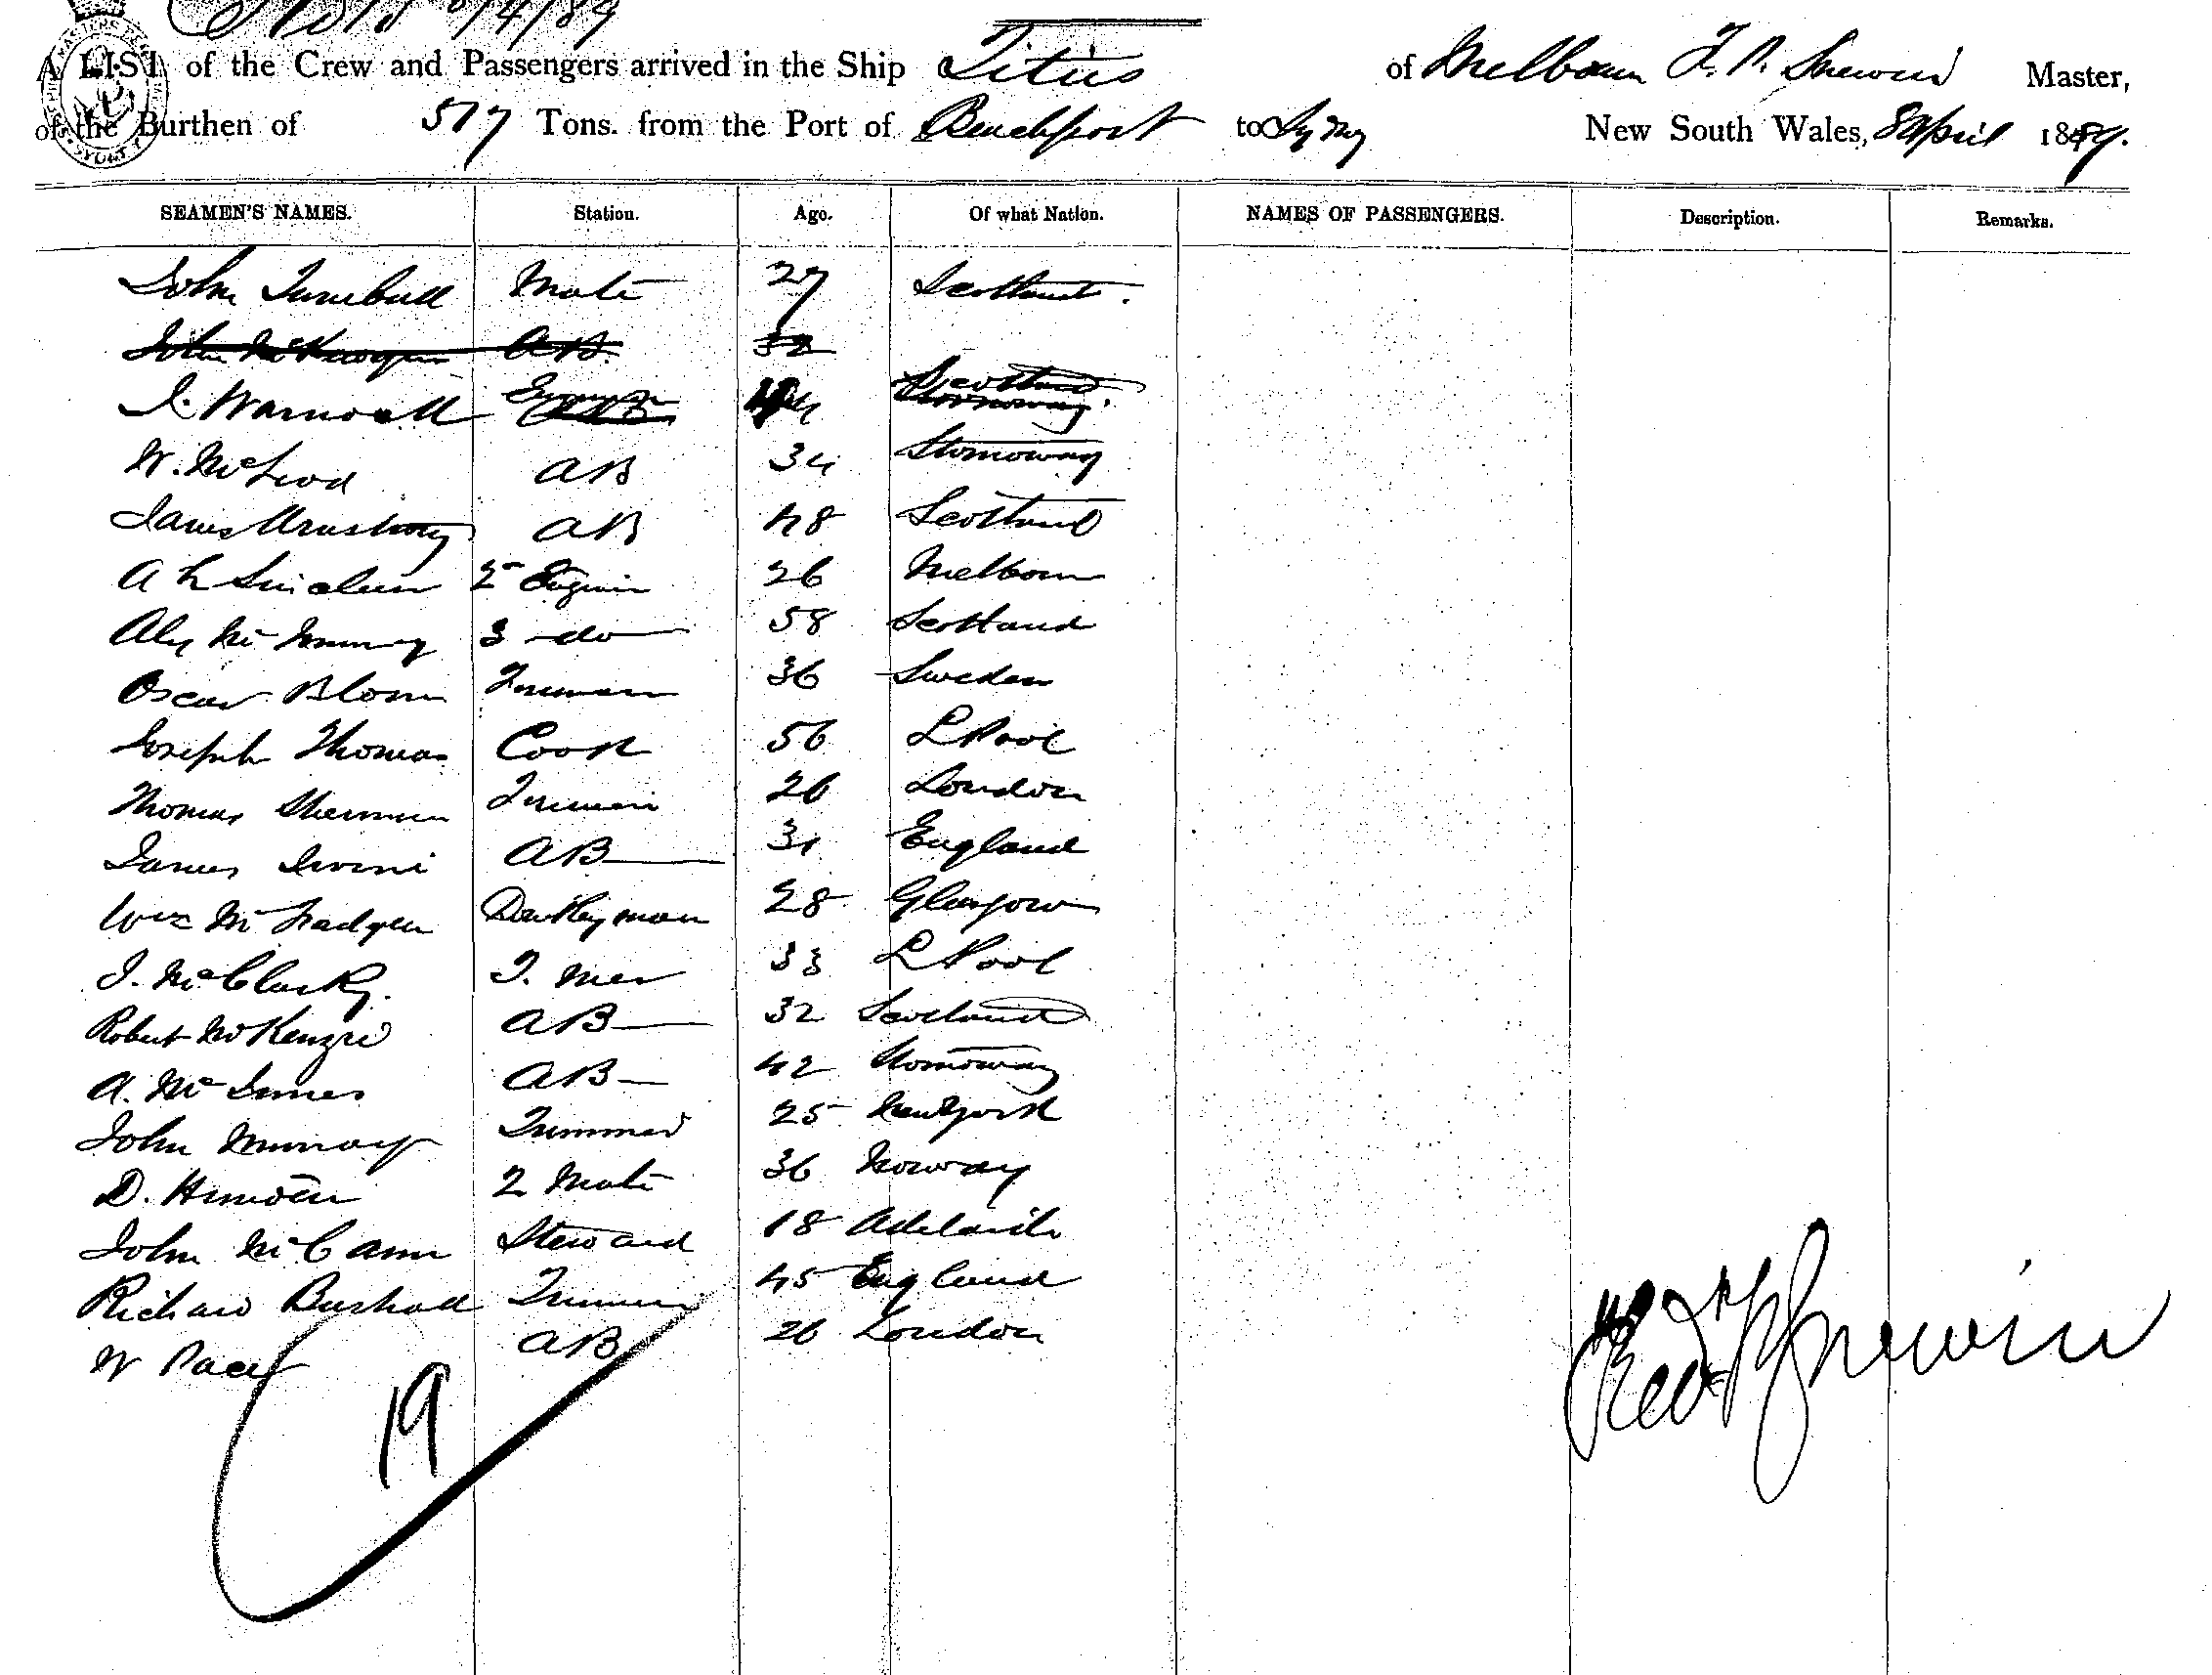 8/4/89
A LIST of the Crew and Passengers arrived in the Ship Titus of Melbourn F. P. Snewin Master,
of the Burthen of 517 Tons. from the Port of Beachport to Sydney New South Wales, 8 April 1889.
SEAMEN'S NAMES. Station. Age. Of what Nation. NAMES OF PASSENGERS. Description. Remarks.
John Turnbull Mate 27 Scotland.
John AB 32
Scotland
J. Warnock Stornoway
W. McLeod AB 34 Stornoway
James Armstrong AB 48 Scotland
A L Sinclair 2nd Engineer 26 Melbourn
Alex McMurray 3 do 58 Scotland
Oscar Blom Fireman 36 Sweden
Joseph Thomas Cook 56 LPool
Thomas Sherman Fireman 26 London
James Irvine AB 31 England
Wm McFadyen Donkeyman 28 Glasgow
J. McClusky F. man 33 LPool
Robert McKenzie AB 32 Scotland
A. McInnes AB 42 Stornoway
John Murray Trimmer 25 New York
D. 2 Mate 36 Norway
John McCann Steward 18 Adelaide
Richard Trimmer 45 England
W AB 26 London
19
Fred P Snewin